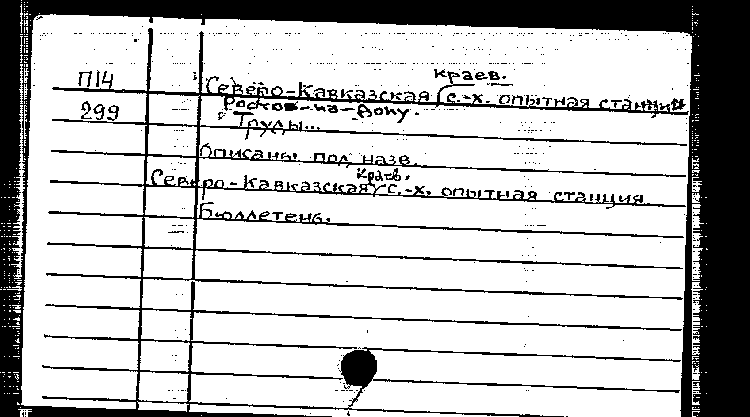 краев.
П14 Северо-Кавказская с.-х. опытная станция
299 Ростов-на-Дону.
Труды...
Описаны под назв.
краев.
Северо-Кавказская с.-х. опытная станция
Бюллетень.